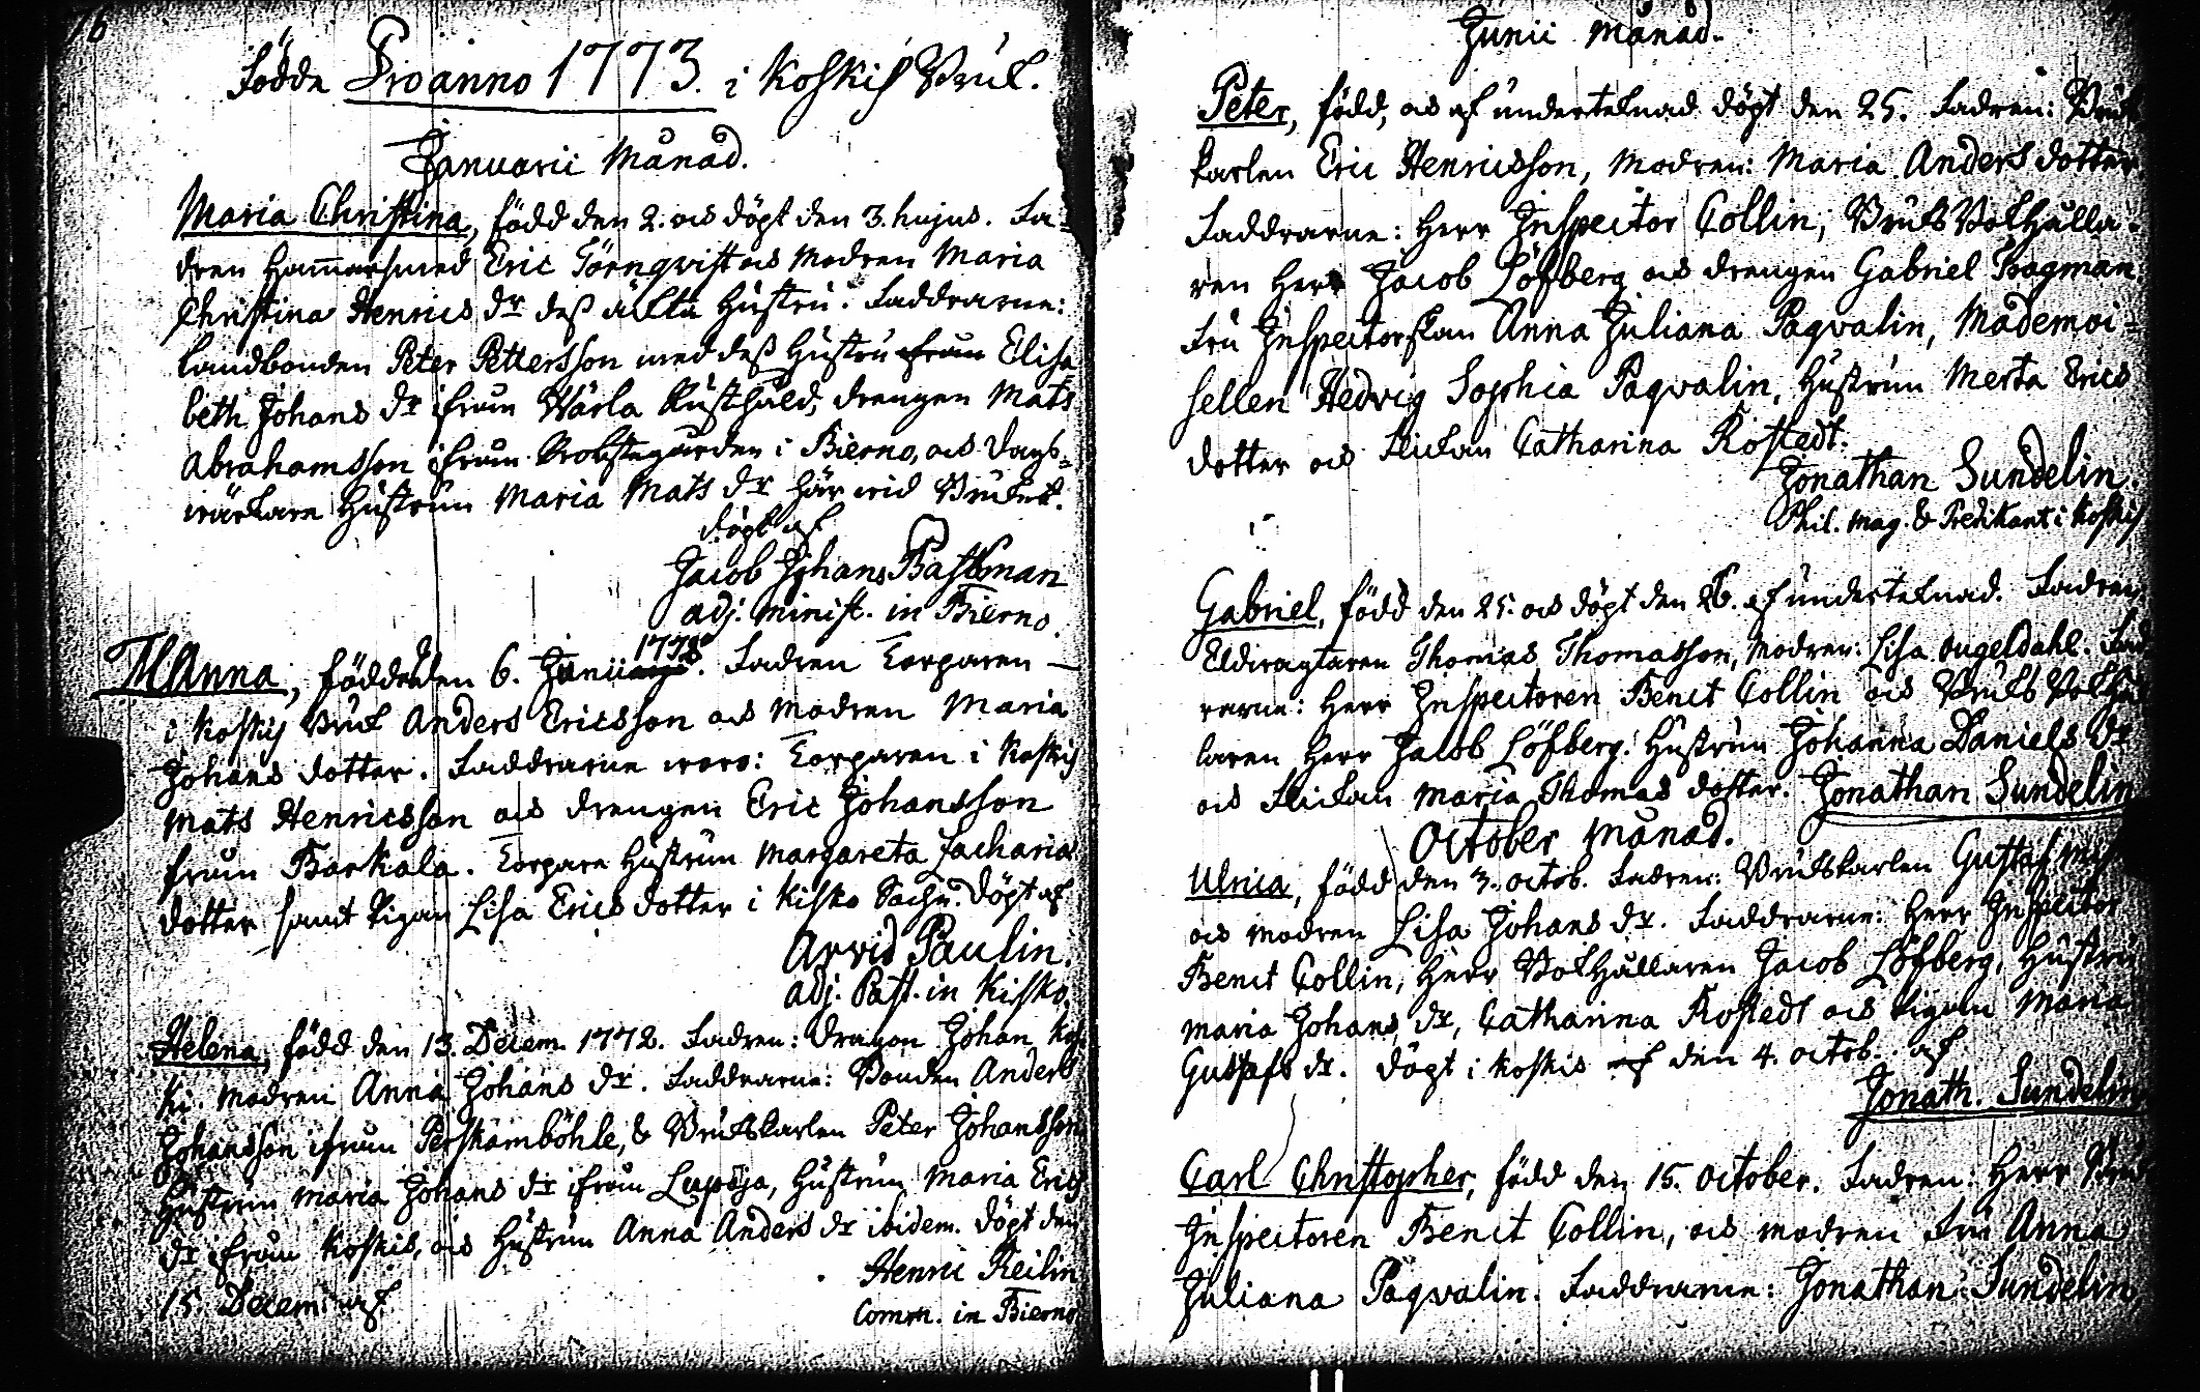 16
Födde Pro anno 1773. i Koskis Bruk.
Januarii Månad.
Maria Christina, född den 2. och döpt den 3. hujus. Fa-
dren Hamarsmed Eric Törnqvist och Modren Maria
Christina Henrics dr dess äckta Hustru. Faddrarne:
Landbonden Peter Pettersson med dess Hustru från Elisa
beth Johans dr ifrån Wärla Rusthåld, drengen Mats
Abrahamsson ifrån Probstegården i Bierno, och Dags-
wärkare Hustrun Maria Mats dr här wid Bruket.
döpt af
Jacob Johans Bastman
adj. minist. in Bierno.
Anna, född den 6. Junii 1773. Fadren Torparen —
i Koskis Bruk Anders Ericsson och Modren Maria
Johans dotter. Faddrarne woro: Torparen i Koskis
Mats Henricsson och drengen Eric Johansson
från Barkala. Torpare Hustrun Margareta Zacharia
dotter samt Pigan Lisa Erics dotter i Kisko Sochn. döpt af
Arvid Paulin.
adj. Past. in Kisko.
Helena, född den 13. Decem. 1772. Fadren: Dragon Johan Kos
ki. Modren Anna Johans dr. Faddrarne: Bonden Anders
Johansson ifrån Perskamböhle, & Brukskarlen Peter Johansson
Hustrun Maria Johans dr ifrån Lapsja, Hustrun Maria Erics
dr ifrån Koskis, och Hustrun Anna Anders dr ibidem. döpt den
15. Decem. af
Henric Reilin
Comm. in Bierno
Junii Månad.
Peter, född, och af underteknad döpt den 25. Fadren: Bruks
karlen Eric Henricsson, Modren: Maria Anders dotter
Faddrarne: Herr Inspector Collin, Bruks Bokhålla-
ren Herr Jacob Löfberg och drengen Gabriel Bagman.
Fru Inspectorskan Anna Juliana Pagvalin, Mademoi-
sellen Hedvig Sophia Pagvalin, Hustrun Merta Erics
dotter och Flickan Catharina Rostedt.
Jonathan Sundelin.
Phil. Mag. & Predikant i Koskis
Gabriel, född den 25. och döpt den 26. af underteknad. Fadren
Eldvagtaren Thomas Thomasson, Modren: Lisa Engeldahl. Fad
rarne: Herr Inspectoren Benct Collin och Bruks Bokhål
laren Herr Jacob Löfberg. Hustrun Johanna Daniels dr
och Flickan Maria Thomas dotter. Jonathan Sundelin
October Månad.
Ulrica, född den 3. octob. Fadren: Brukskarlen Gustaf
och Modren Lisa Johans dr. Faddrarne: Herr Inspector
Benct Collin, Herr Bokhållaren Jacob Löfberg, Hustru
Maria Johans dr, Catharina Rostedt och Pigan Maria
Gustafs dr. döpt i Koskis af den 4. octob. af
Jonath. Sundelin
Carl Christopher, född den 15. October. Fadren: Herr Bruks
Inspectoren Benct Collin, och Modren Fru Anna
Juliana Pagvalin. Faddrarne: Jonathan Sundelin,